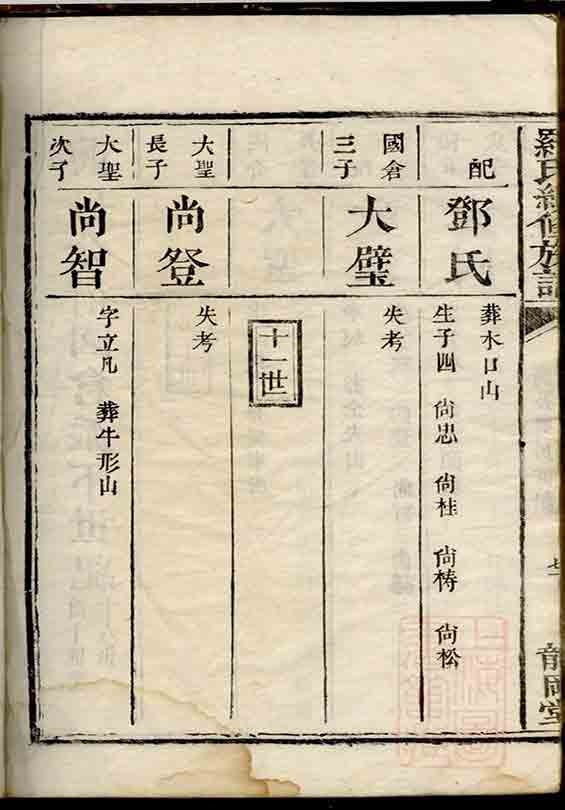 羅氏續修族譜
七
龍岡堂
配
鄧氏
葬水口山
生子四 尙忠 尙桂 尙梼 尙松
國倉
三子
大璧
失考
十一世
大聖
長子
尚登
失考
大聖
次子
尚智
字立凡 葬牛形山